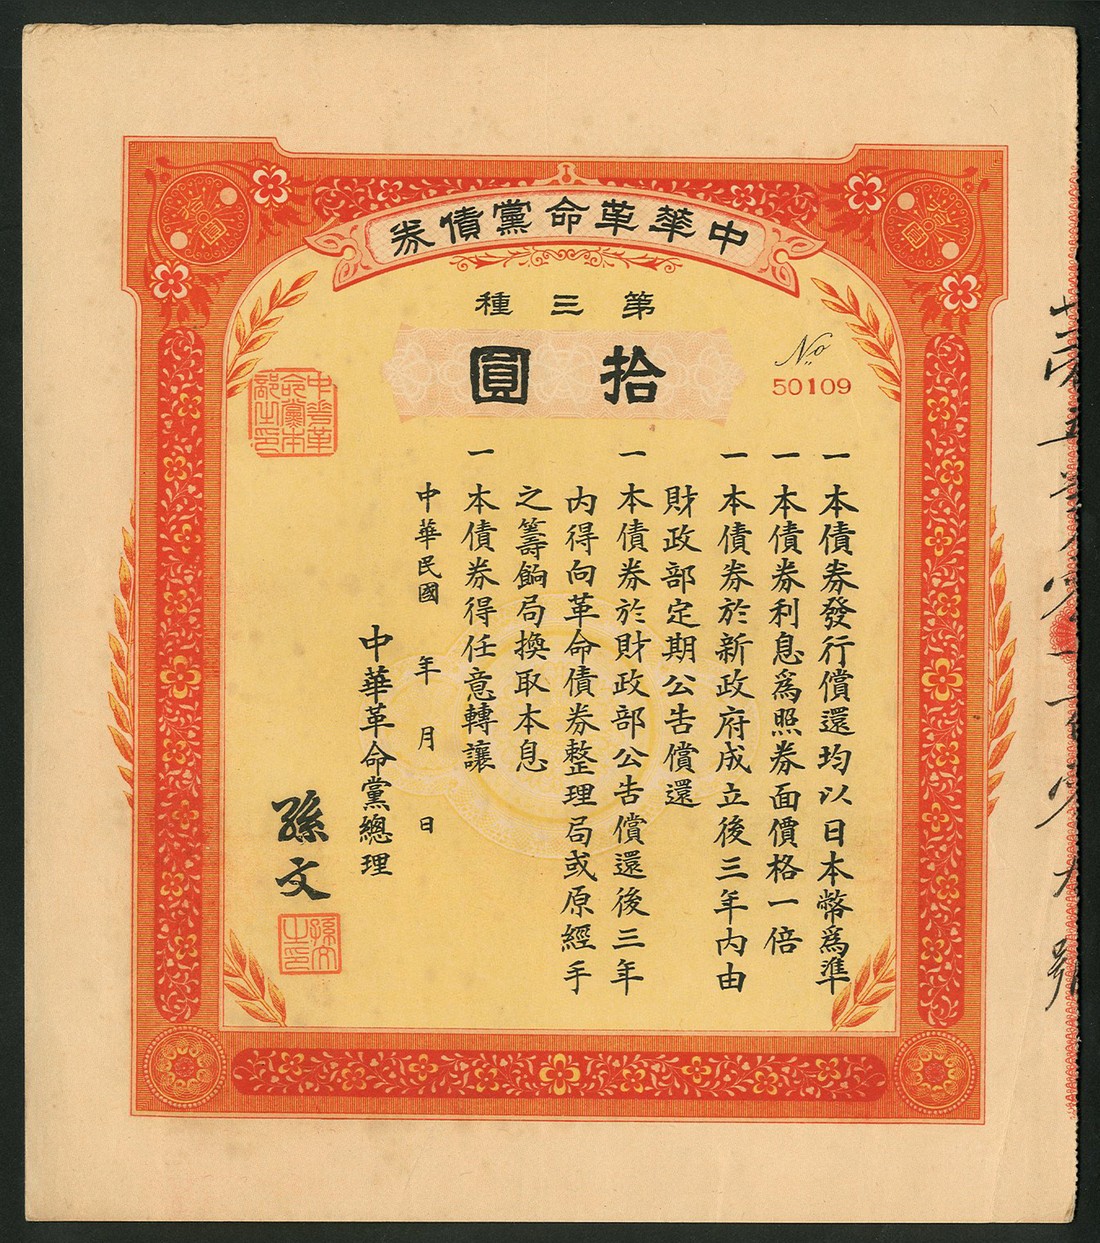 中華革命黨債券
第三種
拾圓
No 50109
一本債券發行償還均以日本幣爲準
一本債券利息爲照券面價格一倍
一本債券於新政府成立後三年內由
財政部定期公告償還
一本債券於財政部公告償還後三年
內得向革命債券整理局或原經手
之籌餉局換取本息
一本債券得任意轉讓
中華民國 年 月 日
中華革命黨總理
孫文
中華革命黨本部之印
孫文之印
拾圓
拾圓